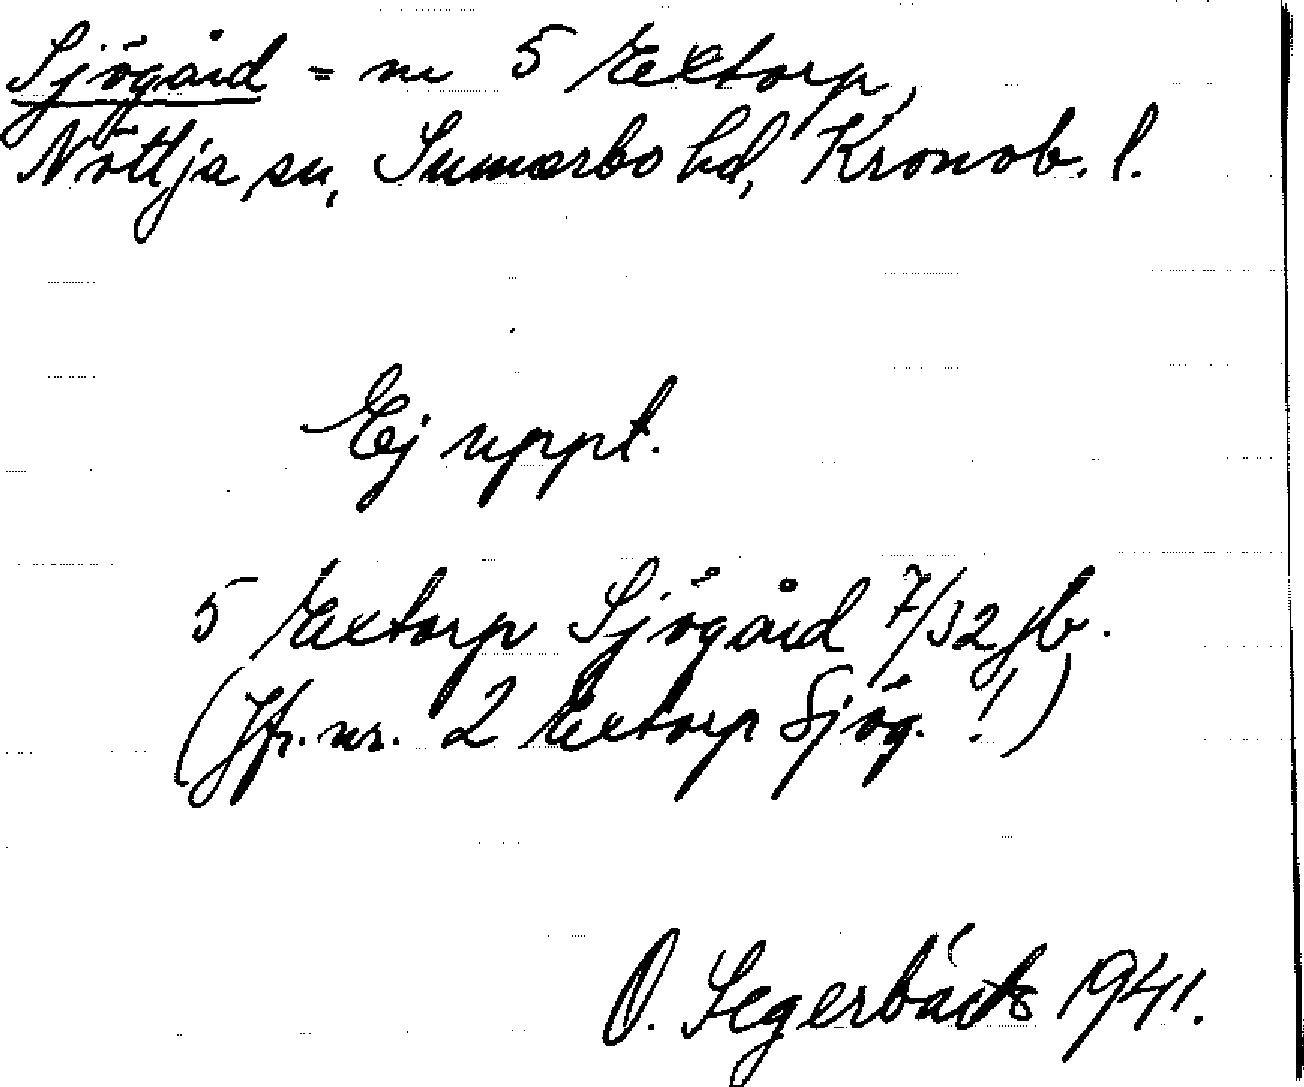 Sjögård = nr 5 Extorp,
Nöttja sn, Sunnerbo hd, Kronob. l.
Ej uppt.
5 Extorp Sjögård 7/32 jb.
(Jfr. nr. 2 Extorp Sjög. !)
O. Segerbäck 1941.